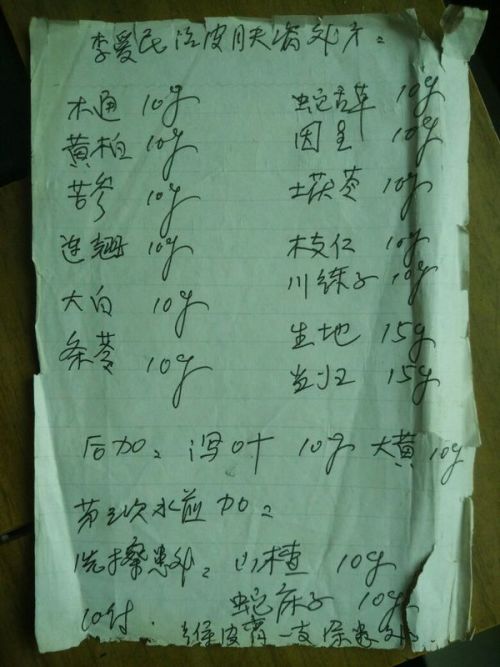 李爱民治皮肤病处方:
木通 10g 蛇舌草 10g
黄柏 10g 因呈 10g
苦参 10g 土茯苓 10g
连翘 10g 枝仁 10g
大白 10g 川练子 10g
条芩 10g 生地 15g
当归 15g
后加: 泻叶 10g 大黄 10g
第三次水煎加:
洗擦患处: 山楂 10g
10付 蛇床子 10g
皮 膏一支